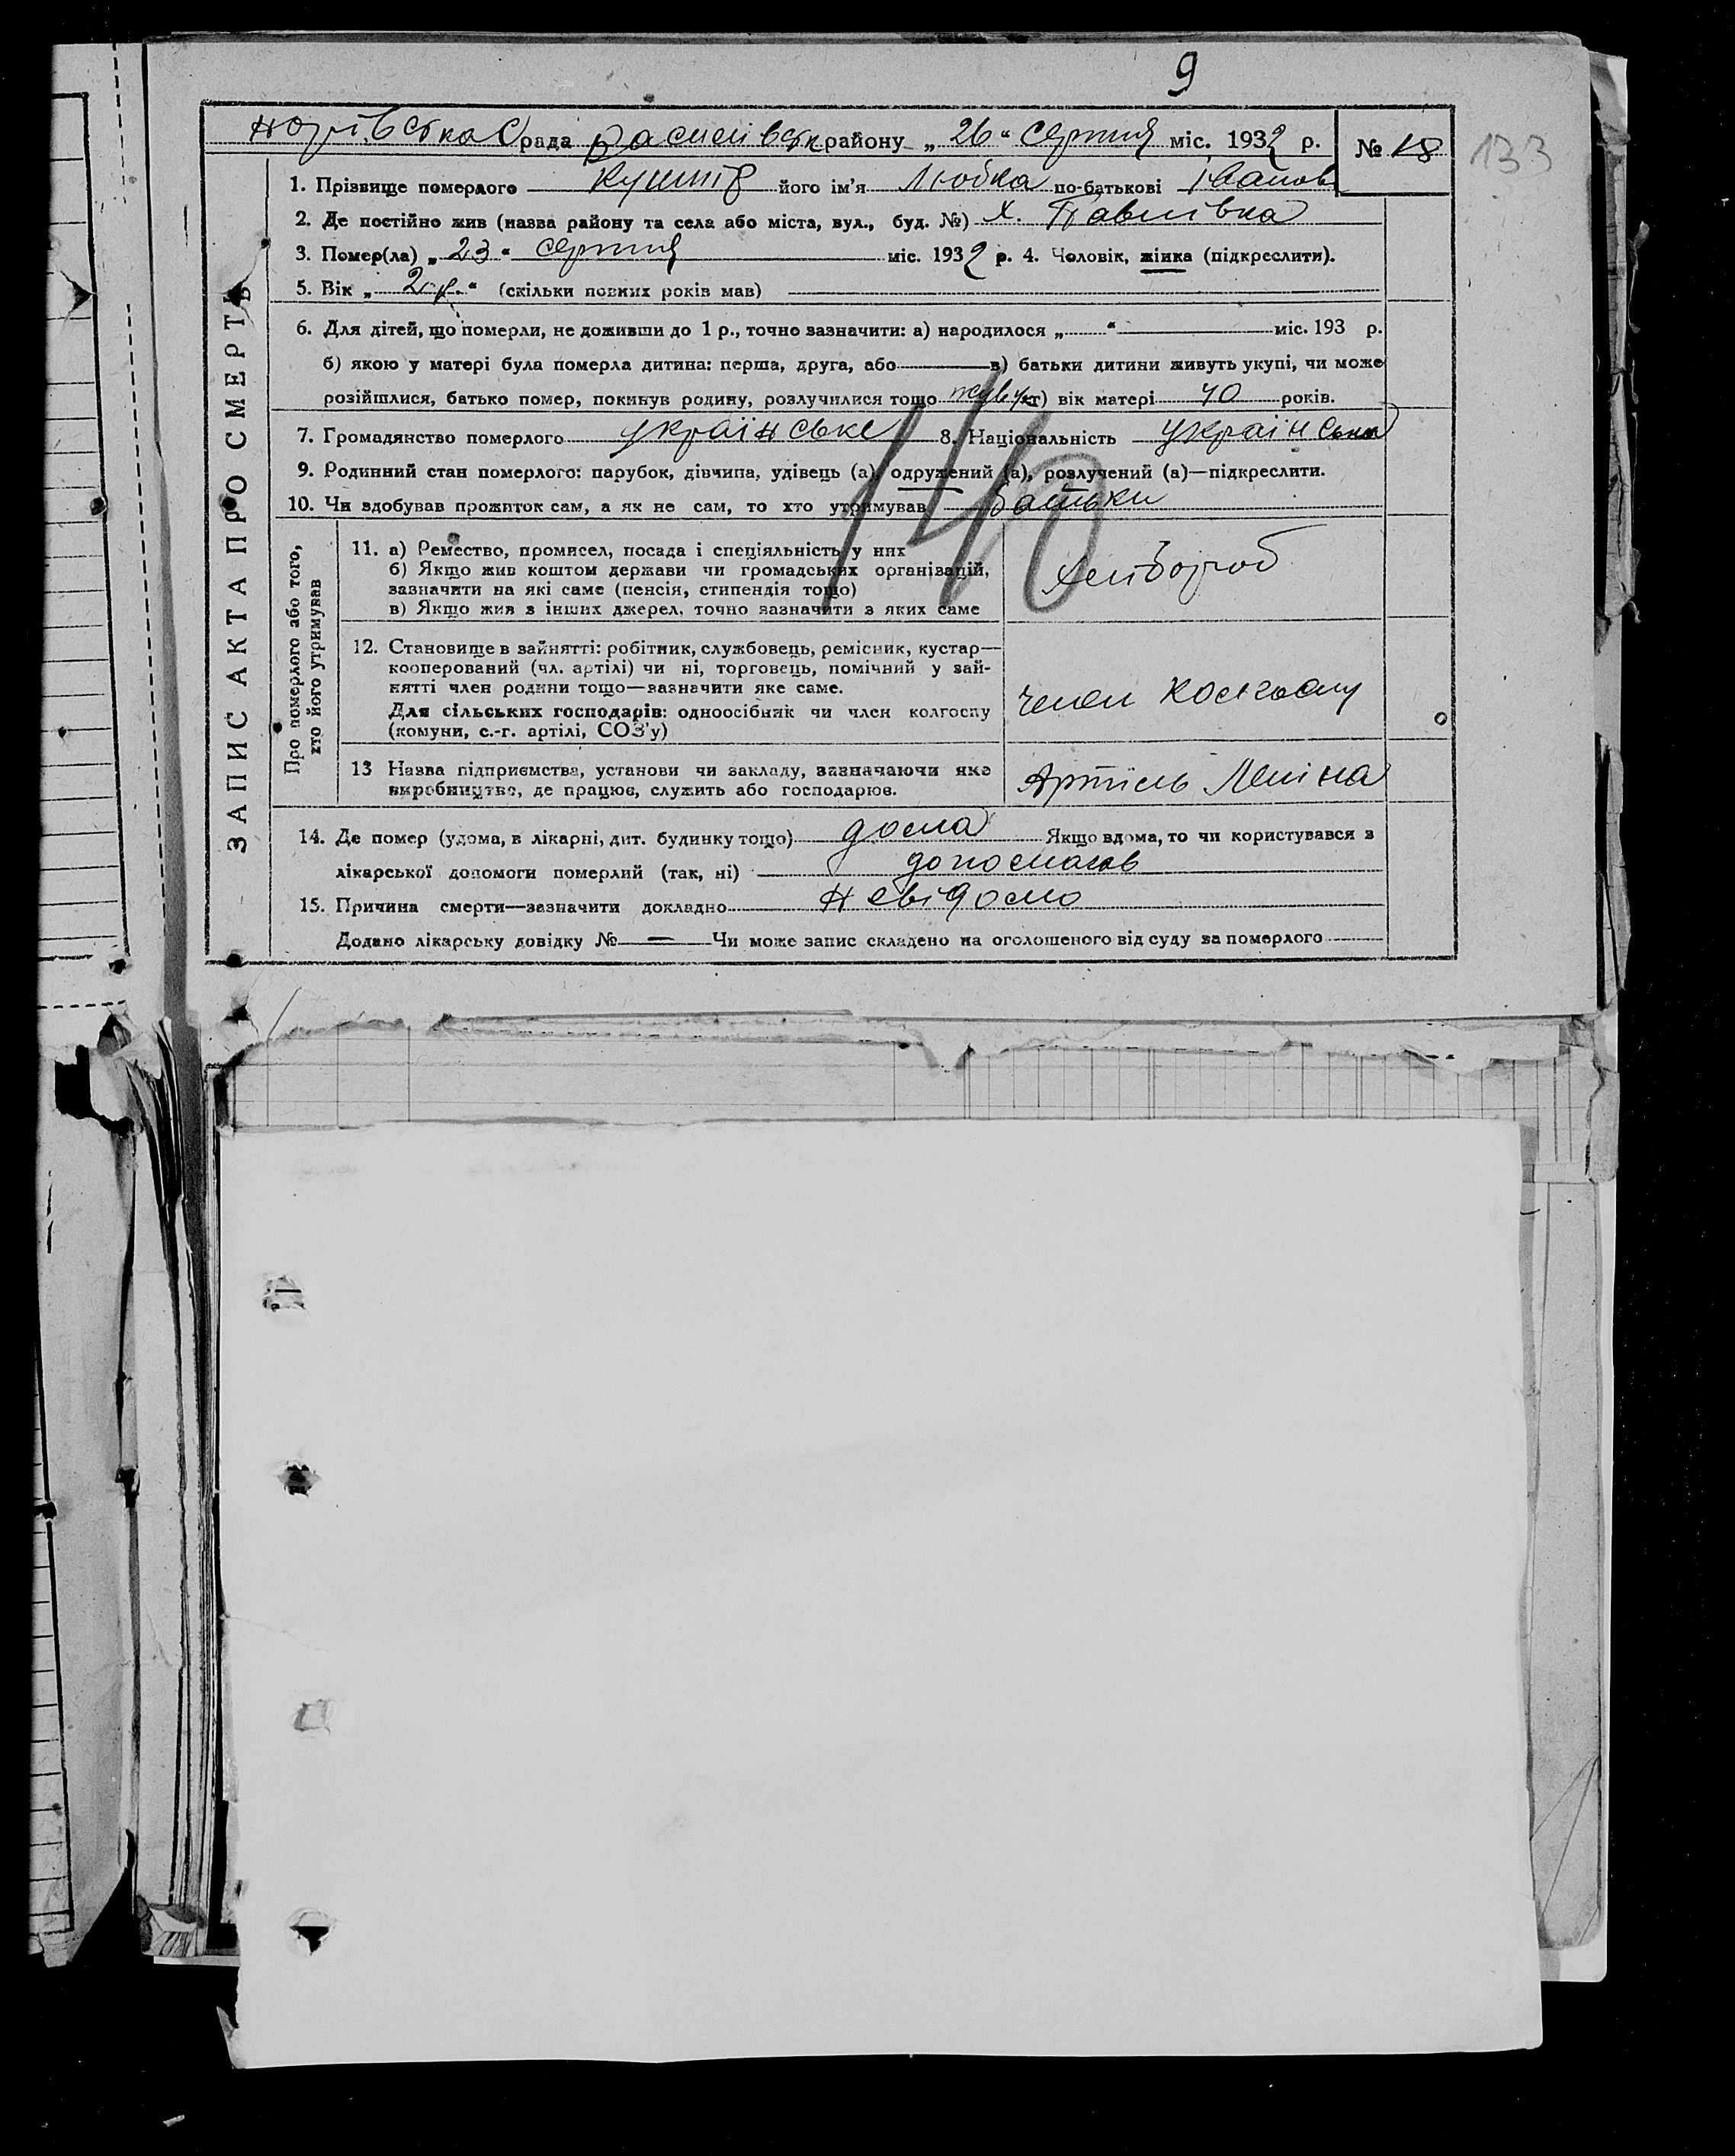 9
рада района „ 26 “ серпня міс. 1932 р. № 18
133
1. Прізвище померлого Кушнір його ім'я Любка по-батькові Іванов
2. Де постійно жив (назва району та села або міста, вул., буд. №) х. Павлівка
3. Помер(ла) „ 23 “ серпня міс. 1932 р. 4. Чоловік, жінка (підкреслити).
5. Вік „ 2 р. “ (скільки повних років мав)
6. Для дітей, що померли, не доживши до 1 р., точно зазначити: а) народилося „ “ міс. 193 р.
б) якою у матері була померла дитина: перша, друга, або в) батьки дитини живуть укупі, чи може
розійшлися, батько помер, покинув родину, розлучилися тощо живут г) вік матері 40 років.
7. Громадянство померлого українське 8. Національність українська
9. Родинний стан померлого: парубок, дівчина, удівець (а), одружений (а), розлучений (а)—підкреслити.
10. Чи здобував прожиток сам, а як не сам, то хто утримував батьки
ЗАПИС АКТА ПРО СМЕРТЬ
Про померлого або того,
хто його утримував
11. а) Ремество, промисел, посада і спеціяльність у них
б) Якщо жив коштом держави чи громадських організацій,
зазначити на які саме (пенсія, стипендія тощо)
в) Якщо жив з інших джерел, точно зазначити з яких саме
хлібороб
12. Становище в зайнятті: робітник, службовець, ремісник, кустар—
кооперований (чл. артілі) чи ні, торговець, помічний у зай-
нятті член родини тощо—зазначити яке саме.
Для сільських господарів: одноосібник чи член колгоспу
(комуни, с.-г. артілі, СОЗ'у)
член колгоспу
13 Назва підприємства, установи чи закладу, зазначаючи яке
виробництво, де працює, служить або господарює.
Артіль Леніна
14. Де помер (удома, в лікарні, дит. будинку тощо) дома Якщо вдома, то чи користувався з
лікарської допомоги померлий (так, ні)
15. Причина смерти—зазначити докладно невідомо
Додано лікарську довідку № — Чи може запис складено на оголошеного від суду за померлого